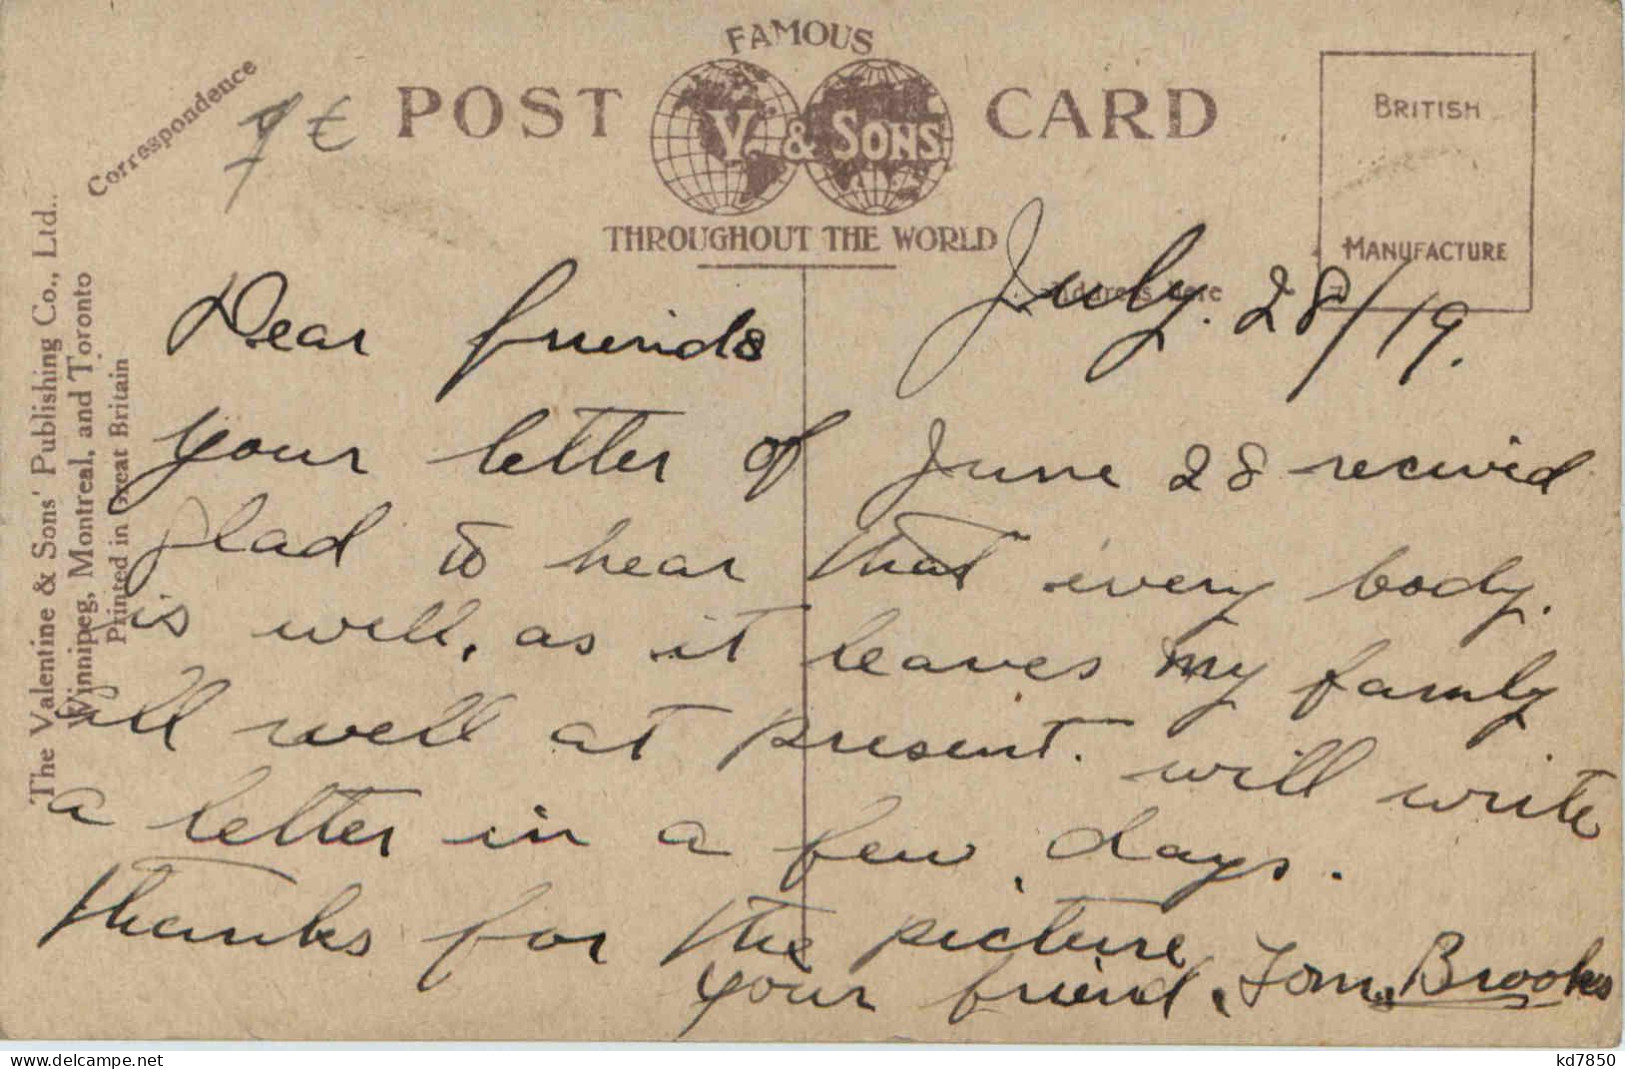 FAMOUS
POST CARD
V. & SONS
THROUGHOUT THE WORLD
BRITISH
MANUFACTURE
Correspondence
7 €
The Valentine & Sons' Publishing Co., Ltd..
Winnipeg, Montreal, and Toronto
Printed in Great Britain
July. 28/19.
Dear friends
your letter of June 28 recived
glad to hear that every body.
is well, as it leaves my family
all well at present. will write
a letter in a few days.
thanks for the picture
your friend, Tom. Brooks
kd7850
delcampe.net